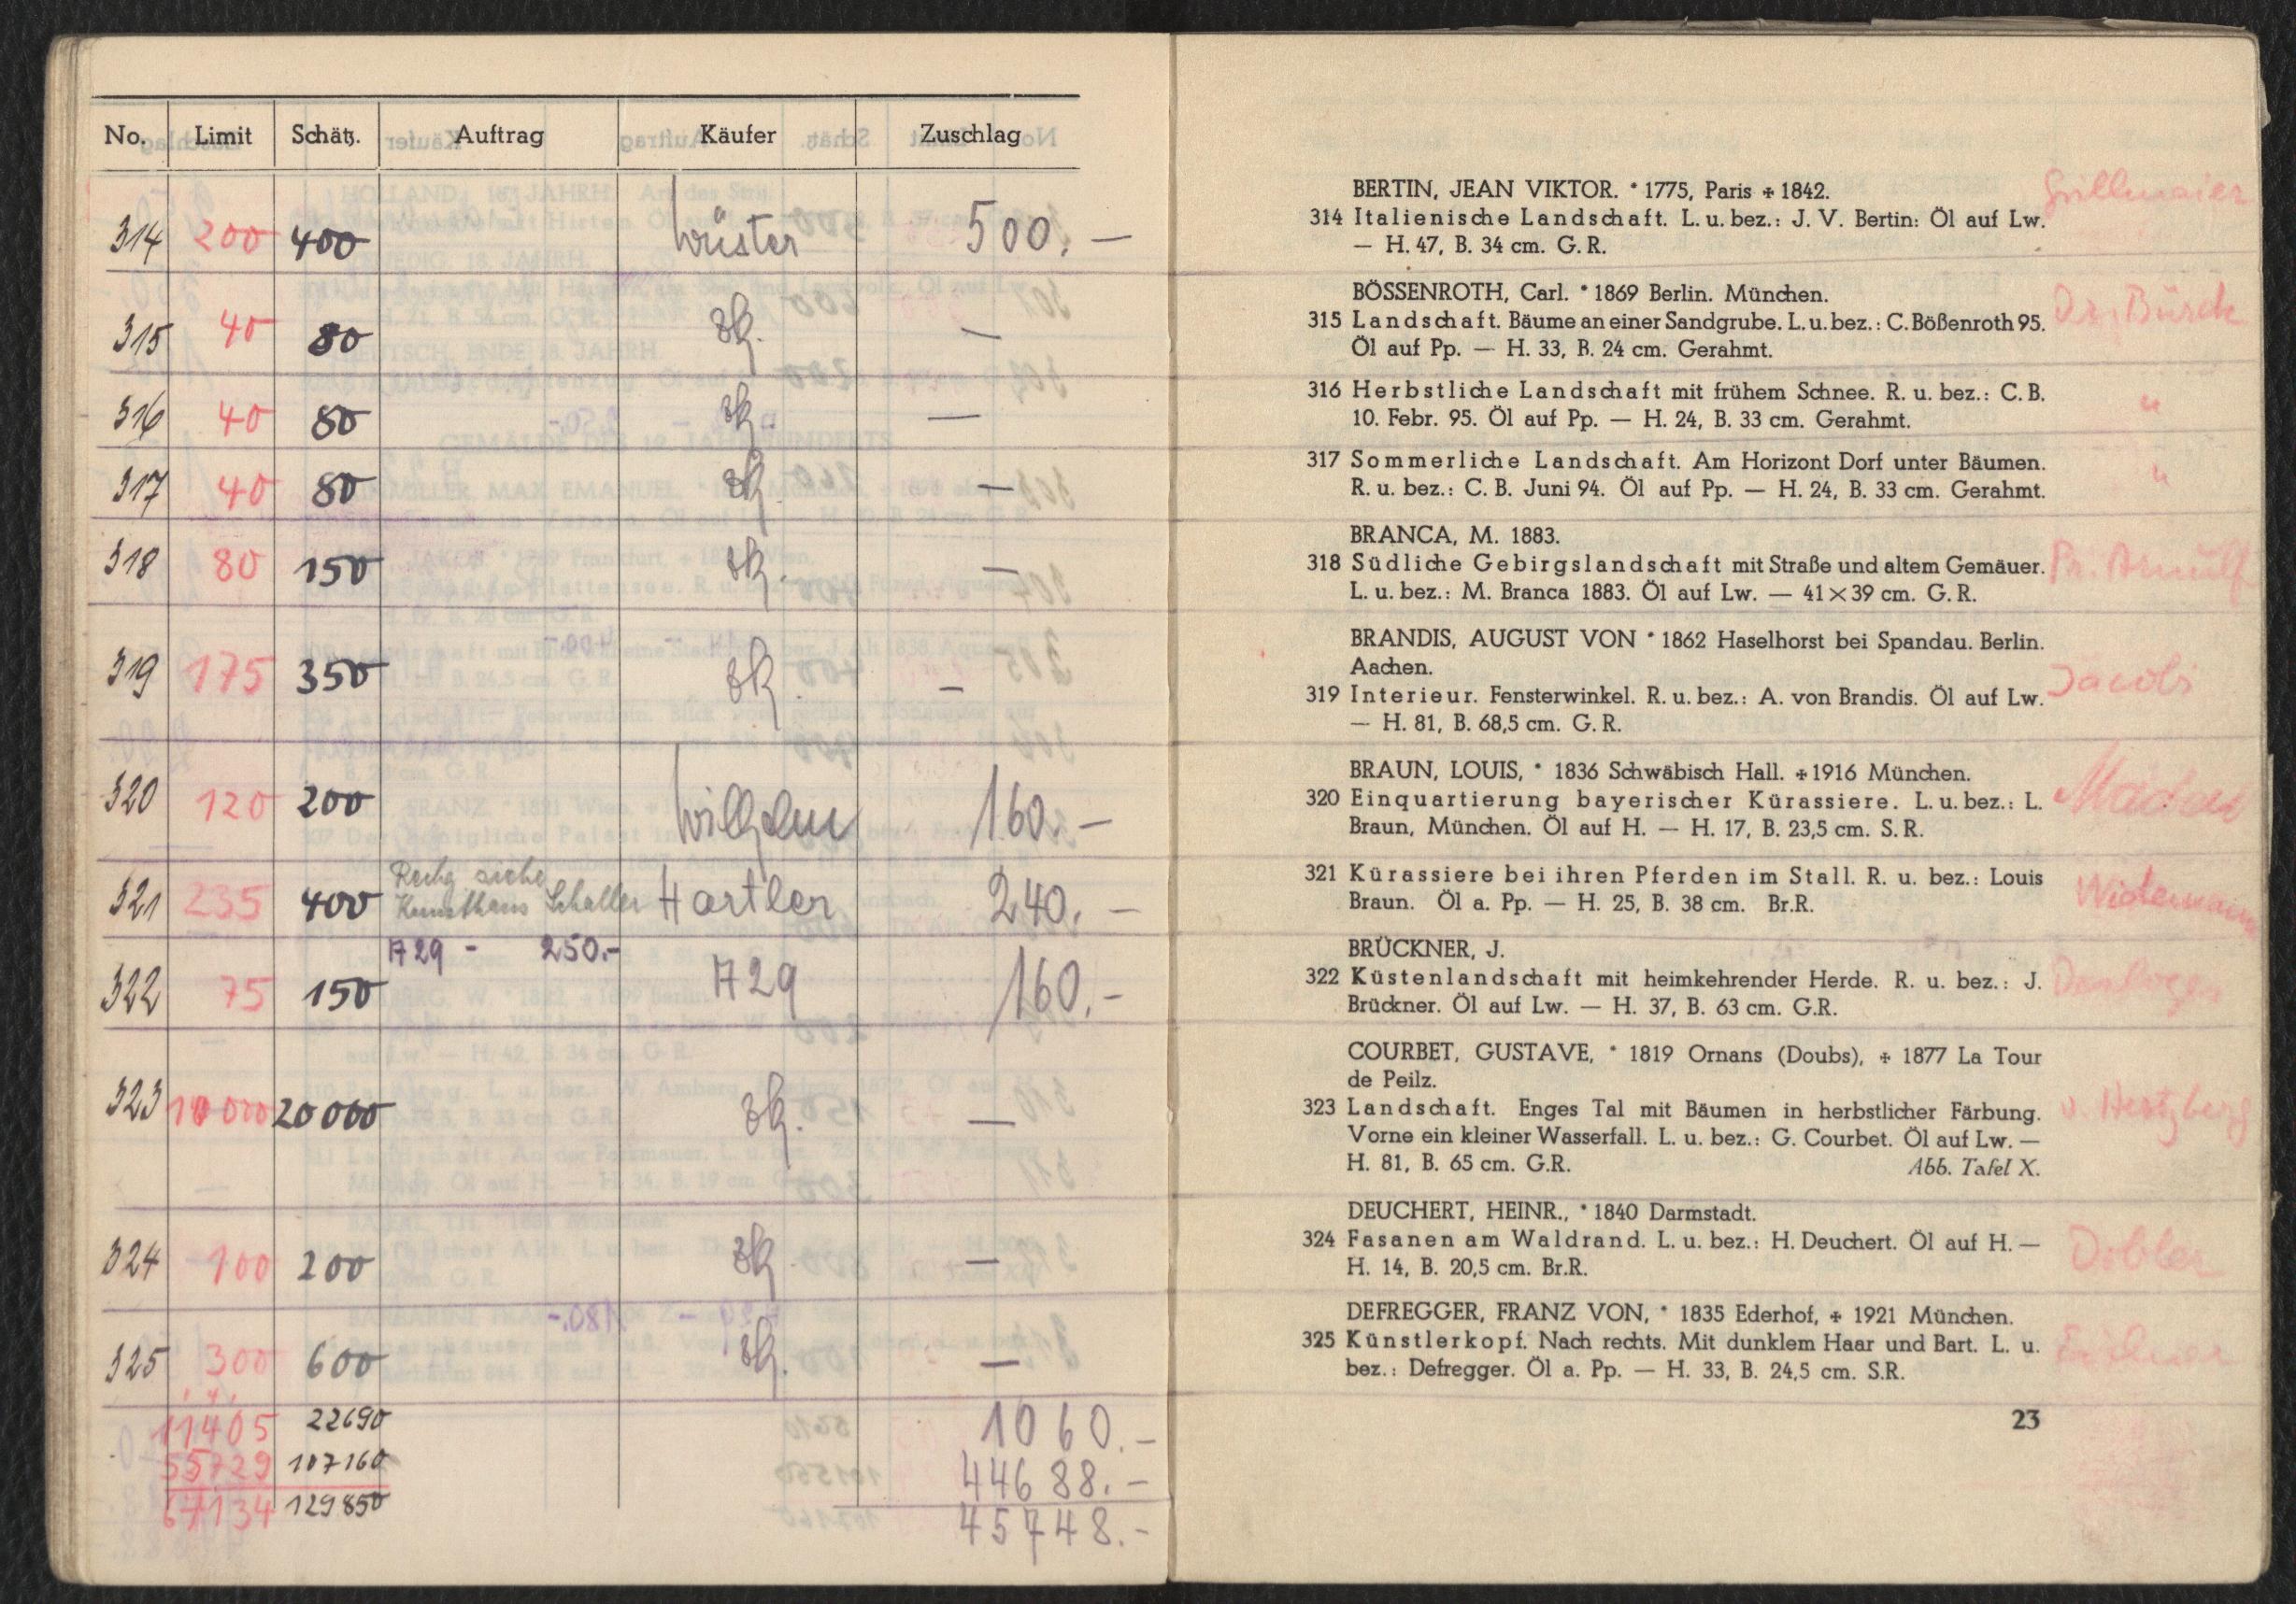 No. Limit Schätz. Auftrag Käufer Zuschlag
314 200 400 Wüster 500.—
315 40 80 zk. —
316 40 80 zk. —
317 40 80 zk. —
318 80 150 zk. —
319 175 350 zk. —
320 120 200 Wilhelm 160.—
Rechg siehe
321 235 400 Kunsthaus Schaller Hartler 240.—
A29 - 250.-
322 75 150 A29 160.-
323 10000 20000 zk. —
324 100 200 zk. —
325 300 600 zk. —
11405 22690 1060.-
55729 107160 44688.-
67134 129850 45748.-
BERTIN, JEAN VIKTOR. * 1775, Paris + 1842.
314 Italienische Landschaft. L. u. bez.: J. V. Bertin: Öl auf Lw. Grillmaier
— H. 47, B. 34 cm. G. R.
BÖSSENROTH, Carl. * 1869 Berlin. München.
315 Landschaft. Bäume an einer Sandgrube. L. u. bez.: C. Bößenroth 95. Dr. Bürck
Öl auf Pp. — H. 33, B. 24 cm. Gerahmt.
316 Herbstliche Landschaft mit frühem Schnee. R. u. bez.: C. B. "
10. Febr. 95. Öl auf Pp. — H. 24, B. 33 cm. Gerahmt.
317 Sommerliche Landschaft. Am Horizont Dorf unter Bäumen. "
R. u. bez.: C. B. Juni 94. Öl auf Pp. — H. 24, B. 33 cm. Gerahmt.
BRANCA, M. 1883.
318 Südliche Gebirgslandschaft mit Straße und altem Gemäuer. Pr. Arnulf
L. u. bez.: M. Branca 1883. Öl auf Lw. — 41×39 cm. G. R.
BRANDIS, AUGUST VON * 1862 Haselhorst bei Spandau. Berlin.
Aachen.
319 Interieur. Fensterwinkel. R. u. bez.: A. von Brandis. Öl auf Lw. Jacobi
— H. 81, B. 68,5 cm. G. R.
BRAUN, LOUIS, * 1836 Schwäbisch Hall. + 1916 München.
320 Einquartierung bayerischer Kürassiere. L. u. bez.: L.
Braun, München. Öl auf H. — H. 17, B. 23,5 cm. S. R.
321 Kürassiere bei ihren Pferden im Stall. R. u. bez.: Louis Widemann
Braun. Öl a. Pp. — H. 25, B. 38 cm. Br.R.
BRÜCKNER, J.
322 Küstenlandschaft mit heimkehrender Herde. R. u. bez.: J.
Brückner. Öl auf Lw. — H. 37, B. 63 cm. G.R.
COURBET, GUSTAVE, * 1819 Ornans (Doubs), + 1877 La Tour
de Peilz.
323 Landschaft. Enges Tal mit Bäumen in herbstlicher Färbung. v. Hertzberg
Vorne ein kleiner Wasserfall. L. u. bez.: G. Courbet. Öl auf Lw. —
H. 81, B. 65 cm. G.R. Abb. Tafel X.
DEUCHERT, HEINR., * 1840 Darmstadt.
324 Fasanen am Waldrand. L. u. bez.: H. Deuchert. Öl auf H. — Dobler
H. 14, B. 20,5 cm. Br.R.
DEFREGGER, FRANZ VON, * 1835 Ederhof, + 1921 München.
325 Künstlerkopf. Nach rechts. Mit dunklem Haar und Bart. L. u.
bez.: Defregger. Öl a. Pp. — H. 33, B. 24,5 cm. S.R.
23